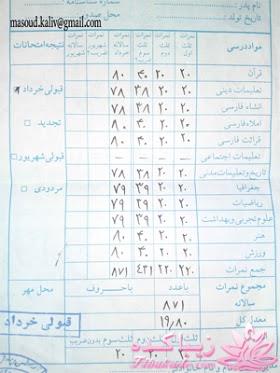 نام پدر:
شماره شناسنامه
تاریخ تولد:
محل صدور
masoud.kaliv@gmail.com
مواد درسی
نمرات ثلث اول
نمرات ثلث دوم
نمرات ثلث سوم ضریب ۲
نمرات سالانه
نمرات شهریور
نمرات شهریور ضریب ۴
نتیجه امتحانات
قرآن ۲۰ ۲۰ ۴۰ ۸۰
تعلیمات دینی ۲۰ ۲۰ ۳۸ ۷۸ قبولی خرداد
انشاء فارسی ۲۰ ۲۰ ۳۸ ۷۸
املاء فارسی ۲۰ ۲۰ ۴۰ ۸۰ تجدید
قرائت فارسی ۲۰ ۲۰ ۴۰ ۸۰
تعلیمات اجتماعی – – – –
تاریخ و تعلیمات مدنی ۲۰ ۲۰ ۳۸ ۷۸ قبولی شهریور
جغرافیا ۲۰ ۲۰ ۳۹ ۷۹ مردودی
ریاضیات ۲۰ ۲۰ ۳۹ ۷۹
علوم تجربی و بهداشت ۲۰ ۲۰ ۳۹ ۷۹
هنر ۲۰ ۲۰ ۴۰ ۸۰
ورزش ۲۰ ۲۰ ۴۰ ۸۰
جمع نمرات ۲۲۰ ۲۲۰ ۴۳۱ ۸۷۱
مجموع نمرات باعدد باحروف محل مهر
سالانه ۸۷۱
معدل کل ۱۹/۸۰
قبولی خرداد
ثلث سوم بدون ضریب
۲۰ ۲۰
زیباکده